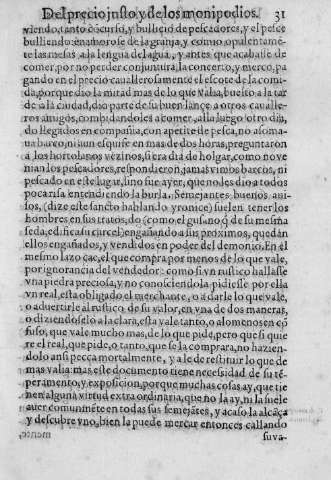 Del precio justo y de los monipodios. 31
viendo, tanto cōcurso, y bullicio de pescadores, y el pesce
bulliendo: enamorose de la granja, y comio opulentamē
te las mesas a la lengua del agua, y antes que acabasse de
comer, por no perder conjuntura, la concerto, y merco, pa
gando en el precio cauallerosamente el escote de la comi
da, porque dio la mitad mas de lo que valia, buelto a la tar
de a la ciudad, dio parte de su buen lance a otros caualle-
ros amigos, combidandoles a comer, alla luego otro dia,
do llegados en compañia, con apetite de pesca, no asoma-
ua barco, ni aun esquife en mas de dos horas, preguntaron
a los hortolanos vezinos, si era dia de holgar, como no ve
nian los pescadores, respondieron, jamas vimos barcos, ni
pescado en este lugar, sino fue ayer, que no les dio a todos
poca risa entendiendo la burla. Semejantes buenos aui-
sos, (dize este sancto hablando yronice) suelen tener los
hombres en sus tratos, do (como el gusano q̄ de su mesma
seda, edifica su carcel) engañando a sus proximos, quedan
ellos engañados, y vendidos en poder del demonio. En el
mesmo lazo cae, el que compra por menos de lo que vale,
por ignorancia del vendedor: como si vn rustico hallasse
vna piedra preciosa, y no conosciendola pidiesse por ella
vn real, esta obligado el merchante, o a darle lo que vale,
o aduertirle al rustico de su valor, en vna de dos maneras,
o diziendoselo a la clara, esta vale tanto, o alomenos en cō
fuso, que vale mucho mas, de lo que pide, pero que si quie
re el real, que pide, o tanto, que se la comprara, no hazien-
dolo ansi pecca mortalmente, y a le de restituir lo que de
mas valia: mas este documento tiene necessidad de su tē-
peramento, y exposicion, porque muchas cosas ay, que tie
nen alguna virtud extra ordinaria, que no la ay, ni la suele
auer comunmēte en todas sus semejātes, y acaso la alcāça
y descubre vno, bien la puede mercar entonces callando
su va-